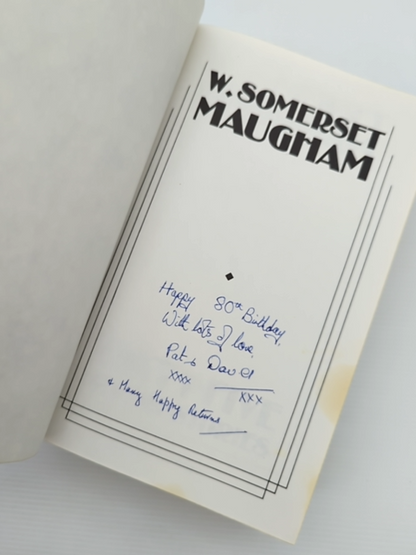 W. SOMERSET
MAUGHAM
Happy 80th Birthday.
With lots of love,
Pat &
xxxx xxx
& Many Happy Returns